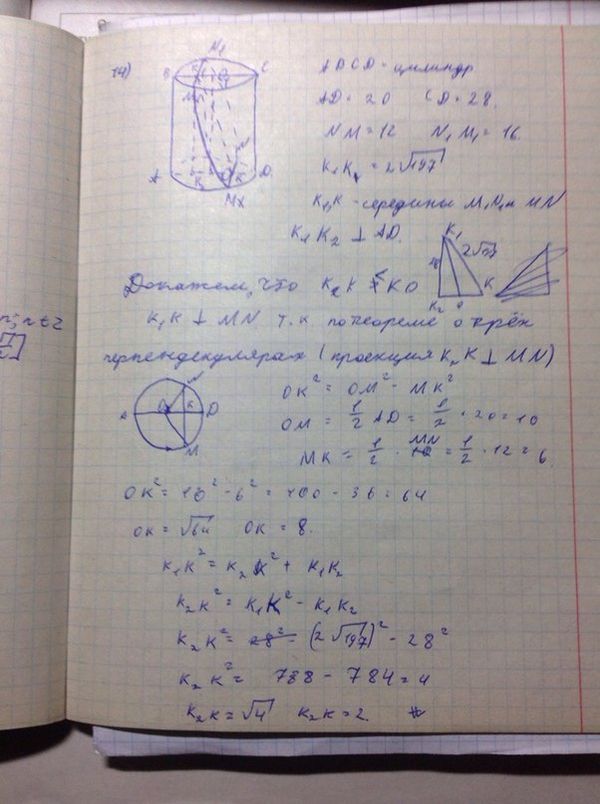 14)
N₁ B C M₁ A K D
ABCD - цилиндр
AD = 20 CD = 28.
NM = 12 N₁M₁ = 16.
K₁K = 2√197
K₁, K - середины M₁N₁ и MN
K₁K₂ ⊥ AD.
K₁ 2√197 28 K₂ O K
Докажем, что K₂K < KO
K₁K ⊥ MN т.к. по теореме о трёх
перпендекулярах (проекция K₂K ⊥ MN)
A O K D N M
OK² = OM² - MK²
OM = 1/2 AD = 1/2 · 20 = 10
MK = 1/2 · MN = 1/2 · 12 = 6.
OK² = 10² - 6² = 100 - 36 = 64
OK = √64 OK = 8.
K₁K² = K₂K² + K₁K₂
K₂K² = K₁K² - K₁K₂
K₂K² = 28² - (2√197)² - 28²
K₂K² = 788 - 784 = 4
K₂K = √4 K₂K = 2.